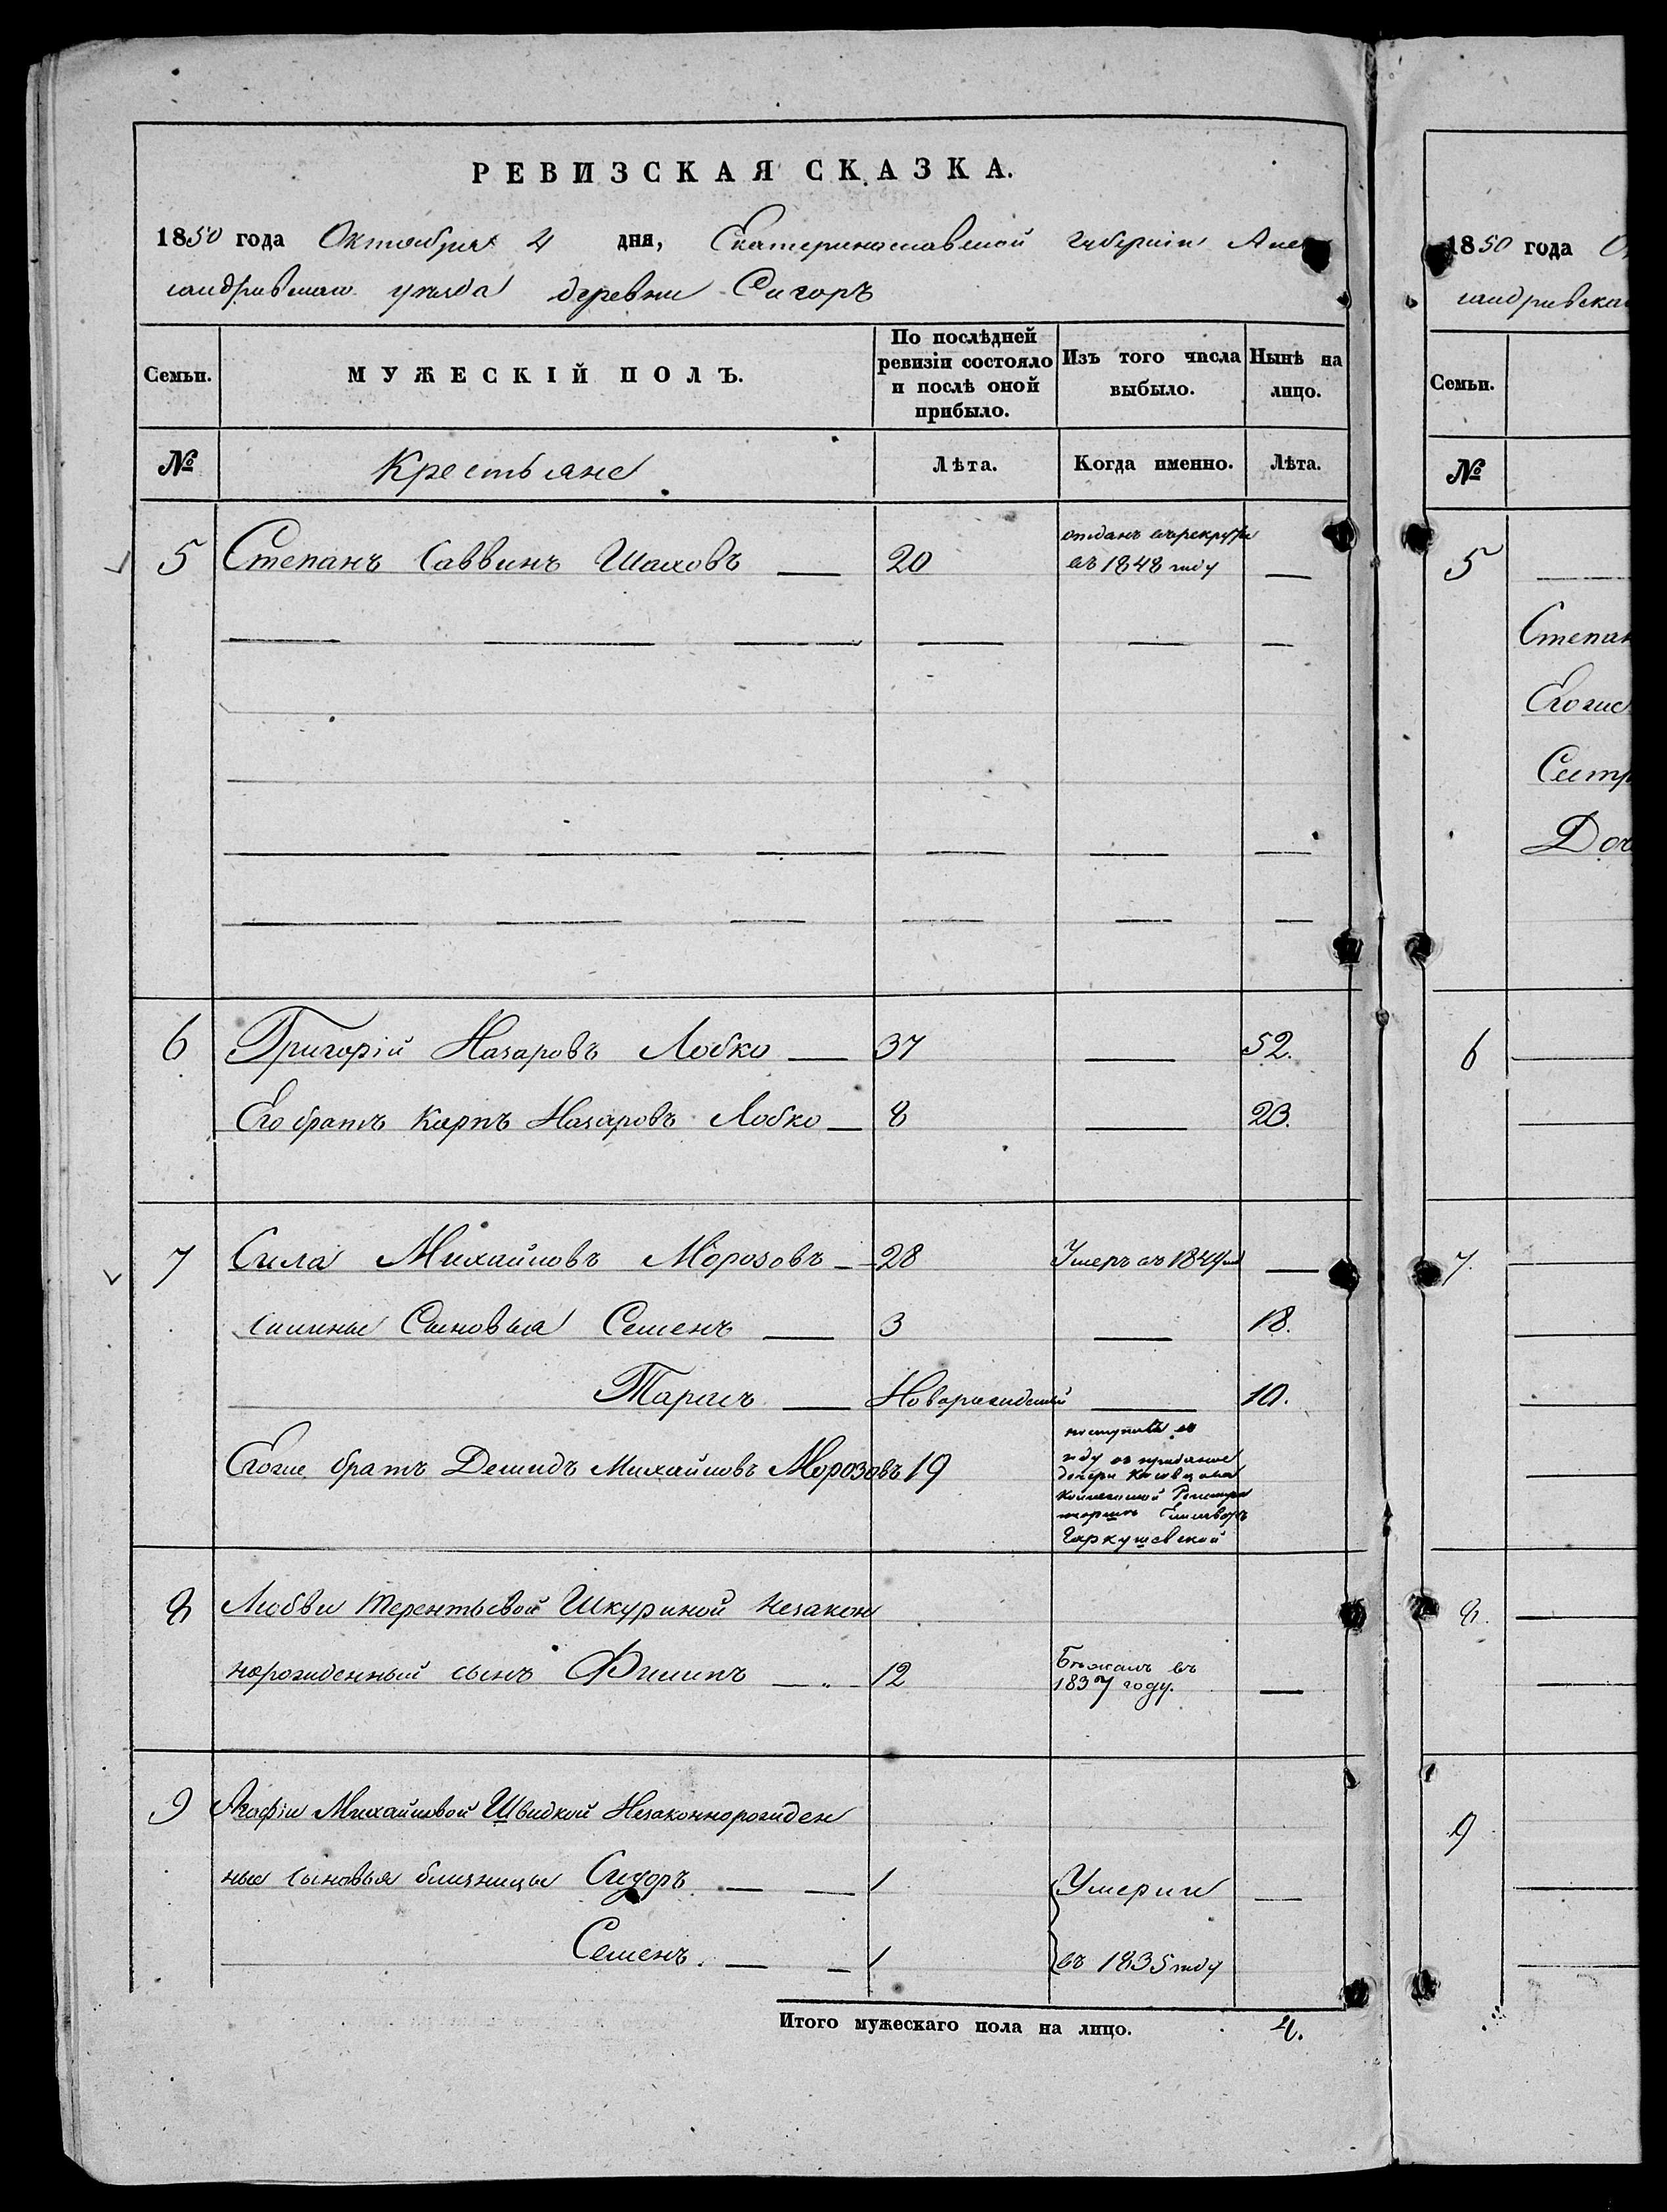 РЕВИЗСКАЯ СКАЗКА.
1850 года Октября 4 дня, Екатеринославской губернiи Алек
сандривскаго уѣзда деревни Сигоръ
Семьи.
МУЖЕСКІЙ ПОЛЪ.
По послѣдней ревизіи состояло и послѣ оной прибыло.
Изъ того числа выбыло.
Нынѣ на лицо.
№
Крестьяне
Лѣта.
Когда именно.
Лѣта.
5 Степанъ Саввинъ Шаховъ — 20 отданъ въ рекруты —
въ 1848 году
6 Григорій Назаровъ Лобко — 37 — 52.
Его братъ Карпъ Назаровъ Лобко — 8 — 23.
7 Сила Михайловъ Морозовъ — 28 Умеръ въ —
Силины Сыновья Семенъ — 3 — 18.
Тарасъ — Новорожденный — 10.
Егоже братъ Демидъ Михайловъ Морозовъ 19
поступилъ въ
году въ приданое
дочери
Коллежской Регистра
торшѣ Елисаветѣ
Гаркушевской
8 Любви Терентьевой Шкуриной незакон
норожденный сынъ Филипъ — 12 Бѣжалъ въ —
1837 году.
9 Агафiи Михайловой Швидкой Незаконнорожден
ные сыновья близницы Сидоръ — 1 Умерли —
Семенъ. — 1 въ 1835 году
Итого мужескаго пола на лицо. 4.
1850 года О
сандривска
Семьи.
№
5
Степан
Егоже
Сестр
Доч
6
7.
8.
9